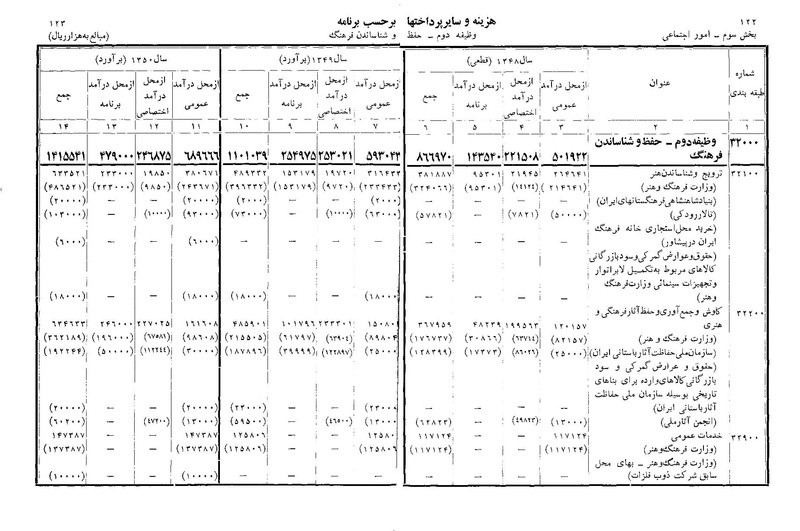 ۱۲۲ هزینه و سایرپرداختها برحسب برنامه ۱۲۳
بخش سوم ـ امور اجتماعی وظیفه دوم ـ حفظ و شناساندن فرهنگ (مبالغ به هزارریال)
شماره طبقه بندی عنوان سال ۱۳۴۸ (قطعی) سال ۱۳۴۹ (برآورد) سال ۱۳۵۰ (برآورد)
ازمحل درآمد عمومی ازمحل درآمد اختصاصی ازمحل درآمد برنامه جمع ازمحل درآمد عمومی ازمحل درآمد اختصاصی ازمحل درآمد برنامه جمع ازمحل درآمد عمومی ازمحل درآمد اختصاصی ازمحل درآمد برنامه جمع
۱ ۲ ۳ ۴ ۵ ۶ ۷ ۸ ۹ ۱۰ ۱۱ ۱۲ ۱۳ ۱۴
۳۲۰۰۰ وظیفه دوم ـ حفظ و شناساندن
فرهنگ ۵۰۱۹۲۲ ۲۲۱۵۰۸ ۱۴۳۵۴۰ ۸۶۶۹۷۰ ۵۹۳۰۴۳ ۲۵۳۰۲۱ ۲۵۴۹۷۵ ۱۱۰۱۰۳۹ ۶۸۹۶۶۶ ۲۴۶۸۷۵ ۴۷۹۰۰۰ ۱۴۱۵۵۴۱
۳۲۱۰۰ ترویج و شناساندن هنر ۲۶۴۶۴۱ ۲۱۹۴۵ ۹۵۳۰۱ ۳۸۱۸۸۷ ۳۱۶۴۳۳ ۱۹۷۲۰ ۱۵۳۱۷۹ ۴۸۹۳۳۲ ۳۸۰۶۷۱ ۱۹۸۵۰ ۲۳۳۰۰۰ ۶۳۳۵۲۱
(وزارت فرهنگ و هنر) (۲۱۴۶۴۱) (۱۴۱۲۴) (۹۵۳۰۱) (۳۲۴۰۶۶) (۲۳۳۴۳۳) (۹۷۲۰) (۱۵۳۱۷۹) (۳۹۶۳۳۲) (۲۴۳۶۷۱) (۹۸۵۰) (۲۳۳۰۰۰) (۴۸۶۵۲۱)
(بنیادشاهنشاهی فرهنگستانهای ایران) — — — — (۲۰۰۰۰) — — (۲۰۰۰۰) (۲۰۰۰۰) — — (۲۰۰۰۰)
(تالاررودکی) (۵۰۰۰۰) (۷۸۲۱) — (۵۷۸۲۱) (۶۳۰۰۰) (۱۰۰۰۰) — (۷۳۰۰۰) (۹۳۰۰۰) (۱۰۰۰۰) — (۱۰۳۰۰۰)
(خرید محل استجاری خانه فرهنگ
ایران درپیشاور) — — — — — — — — (۶۰۰۰) — — (۶۰۰۰)
(حقوق و عوارض گمرکی و سود بازرگانی
کالاهای مربوط به تکمیل لابراتوار
و تجهیزات سینمائی وزارت فرهنگ
و هنر) — — — — — — (۱۸۰۰۰) (۱۸۰۰۰) — — (۱۸۰۰۰)
۳۲۲۰۰ کاوش و جمع آوری و حفظ آثار فرهنگی و
هنری ۱۲۰۱۵۷ ۱۹۹۵۶۳ ۴۸۲۳۹ ۳۶۷۹۵۹ ۱۵۰۸۰۴ ۲۳۳۳۰۱ ۱۰۱۷۹۶ ۴۸۵۹۰۱ ۱۶۱۶۰۸ ۲۲۷۰۲۵ ۲۴۶۰۰۰ ۶۳۴۶۳۳
(وزارت فرهنگ و هنر) (۸۲۱۵۷) (۶۳۷۱۴) (۳۰۸۶۶) (۱۷۶۷۳۷) (۸۹۸۰۴) (۶۳۹۰۴) (۶۱۷۹۷) (۲۱۵۵۰۵) (۹۸۶۰۸) (۶۷۵۸۱) (۱۹۶۰۰۰) (۳۶۲۱۸۹)
(سازمان ملی حفاظت آثار باستانی ایران) (۲۵۰۰۰) (۸۶۰۲۶) (۱۷۳۷۳) (۱۲۸۳۹۹) (۲۵۰۰۰) (۱۲۲۸۹۷) (۳۹۹۹۹) (۱۸۷۸۹۶) (۳۰۰۰۰) (۱۱۲۲۴۴) (۵۰۰۰۰) (۱۹۲۲۴۴)
(حقوق و عوارض گمرکی و سود
بازرگانی کالاهای وارده برای بناهای
تاریخی بوسیله سازمان ملی حفاظت
آثارباستانی ایران) — — — — (۲۳۰۰۰) — — (۲۳۰۰۰) (۲۰۰۰۰) — — (۲۰۰۰۰)
(انجمن آثارملی) (۱۳۰۰۰) (۴۹۸۲۳) — (۶۲۸۲۳) (۱۳۰۰۰) (۴۶۵۰۰) — (۵۹۵۰۰) (۱۳۰۰۰) (۴۷۲۰۰) — (۶۰۲۰۰)
۳۲۹۰۰ خدمات عمومی ۱۱۷۱۲۴ — — ۱۱۷۱۲۴ ۱۲۵۸۰۶ — — ۱۲۵۸۰۶ ۱۴۷۳۸۷ — — ۱۴۷۳۸۷
(وزارت فرهنگ و هنر) (۱۱۷۱۲۴) — — (۱۱۷۱۲۴) (۱۲۵۸۰۶) — — (۱۲۵۸۰۶) (۱۳۷۳۸۷) — — (۱۳۷۳۸۷)
(وزارت فرهنگ و هنر ـ بهای محل
سابق شرکت ذوب فلزات) — — — — — — — — (۱۰۰۰۰) — — (۱۰۰۰۰)